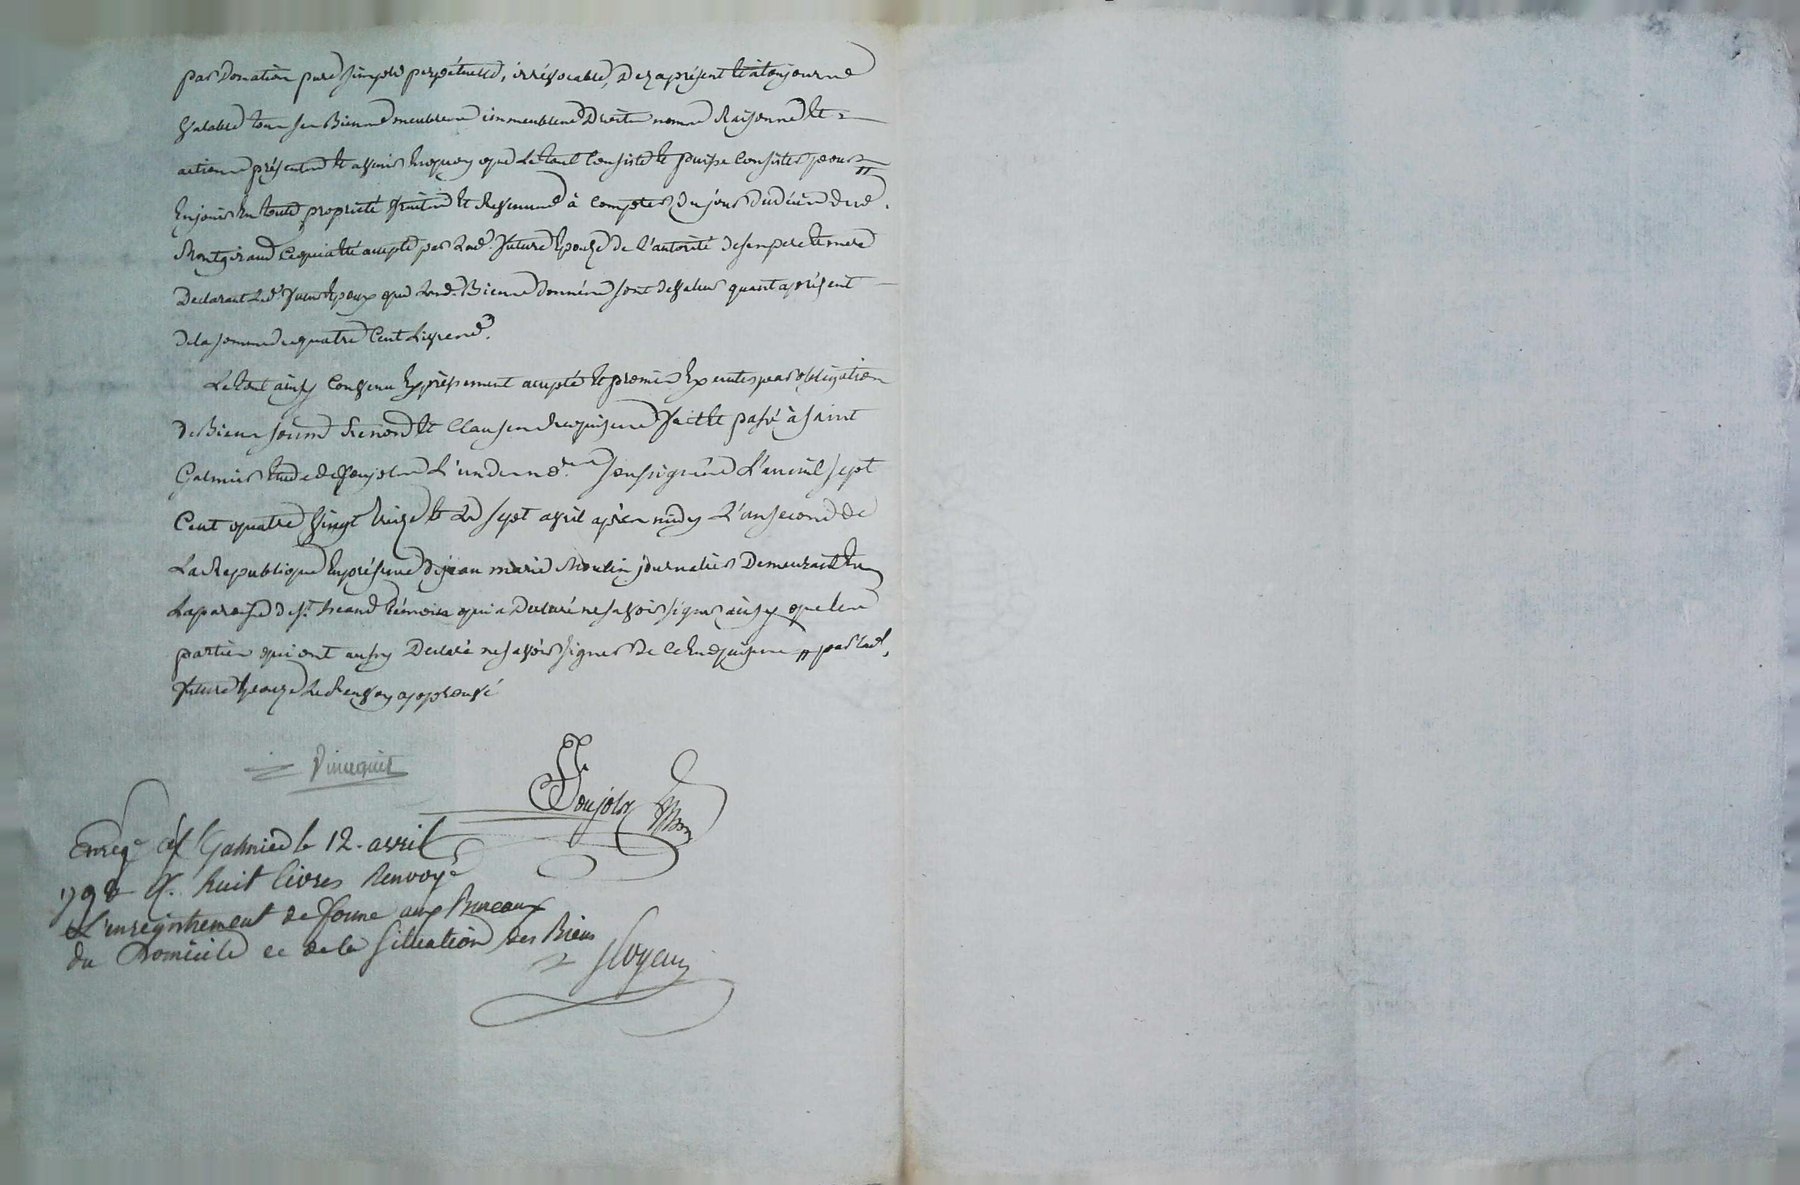 par Donation pure simple perpétuelle, irrévocable, Dezaprésent et atoujours
Valable tous ses Biens meubles immeubles Droits noms Raisons et
actions présents et avenir enquoy que Letout Consiste et puisse Consister pour
En jouir En toute propriété fruits et Revenus à Compter du jour dudécès dud.
Montgiraud Cequia été accepté par Lad. future Epouze de L'autorité desespere et mere
Declarant Led. futur Epoux que Lesd. Biens donnés sont devaleur quant aprésent
dela somme de quatre Cent Livres.
Letout ainsy Convenu Expressement accepté et promis Executer par obligation
de Biens soums. Renon. et Clauses Requises fait et passé à Saint
Galmier Etude de Poujols L'un des no.res soussignés L'an mil sept
Cent quatre vingt treize et Le sept avril après midy L'an second de
La Republique En présence de jean marie Moulin journalier Demeurant En
La paroisse de St. heand témoin qui a Declaré ne savoir signer ainsy que les
parties qui ont aussy Declaré ne savoir signer de ce Enquis = par Lad.
future Epouze Le Renvoy approuvé
Poujols
Enreg.é à St Galmier le 12. avril
1793 R. huit livres Renvoyé
L'enregistrement de forme aux Bureaux
du Domicile et de la Situation des Biens